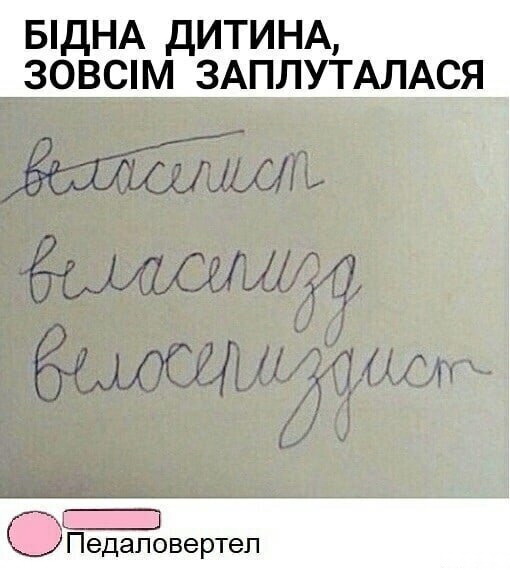 БІДНА ДИТИНА,
ЗОВСІМ ЗАПЛУТАЛАСЯ
веласепист
веласепизд
велосепиздист
Педаловертел